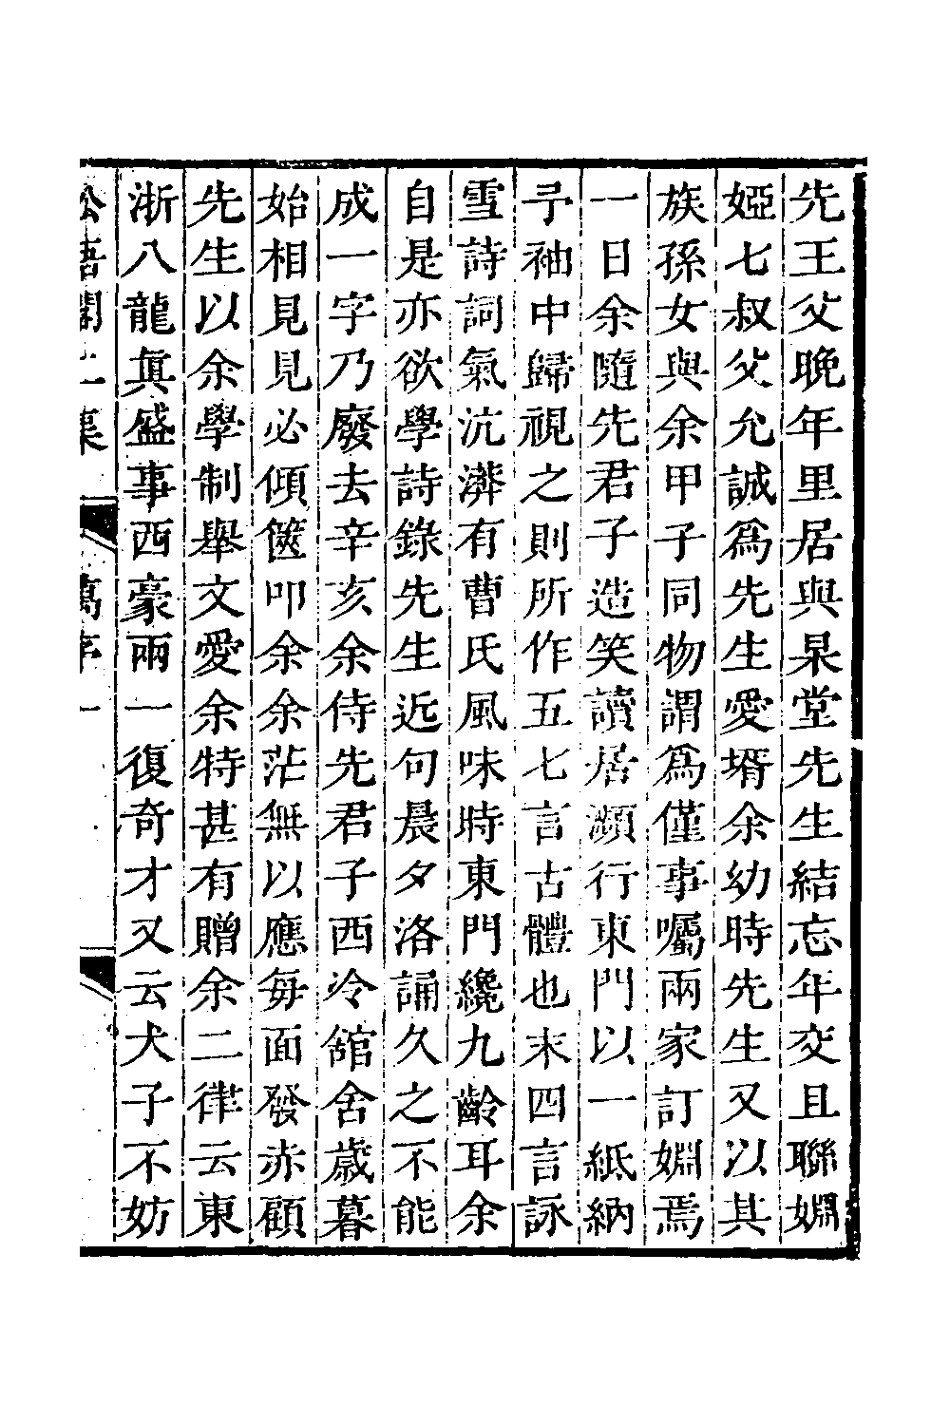 先王父晚年里居與杲堂先生結忘年交且聯婣
婭七叔父允誠爲先生愛壻余幼時先生又以其
族孫女與余甲子同物謂爲僅事囑兩家訂婣焉
一日余隨先君子造笑讀居瀕行東門以一紙納
予袖中歸視之則所作五七言古體也末四言詠
雪詩詞氣沆瀣有曹氏風味時東門纔九齡耳余
自是亦欲學詩錄先生近句晨夕洛誦久之不能
成一字乃廢去辛亥余侍先君子西泠舘舍歲暮
始相見見必傾篋叩余余茫無以應每面發赤顧
先生以余學制舉文愛余特甚有贈余二律云東
浙八龍眞盛事西豪兩一復奇才又云犬子不妨